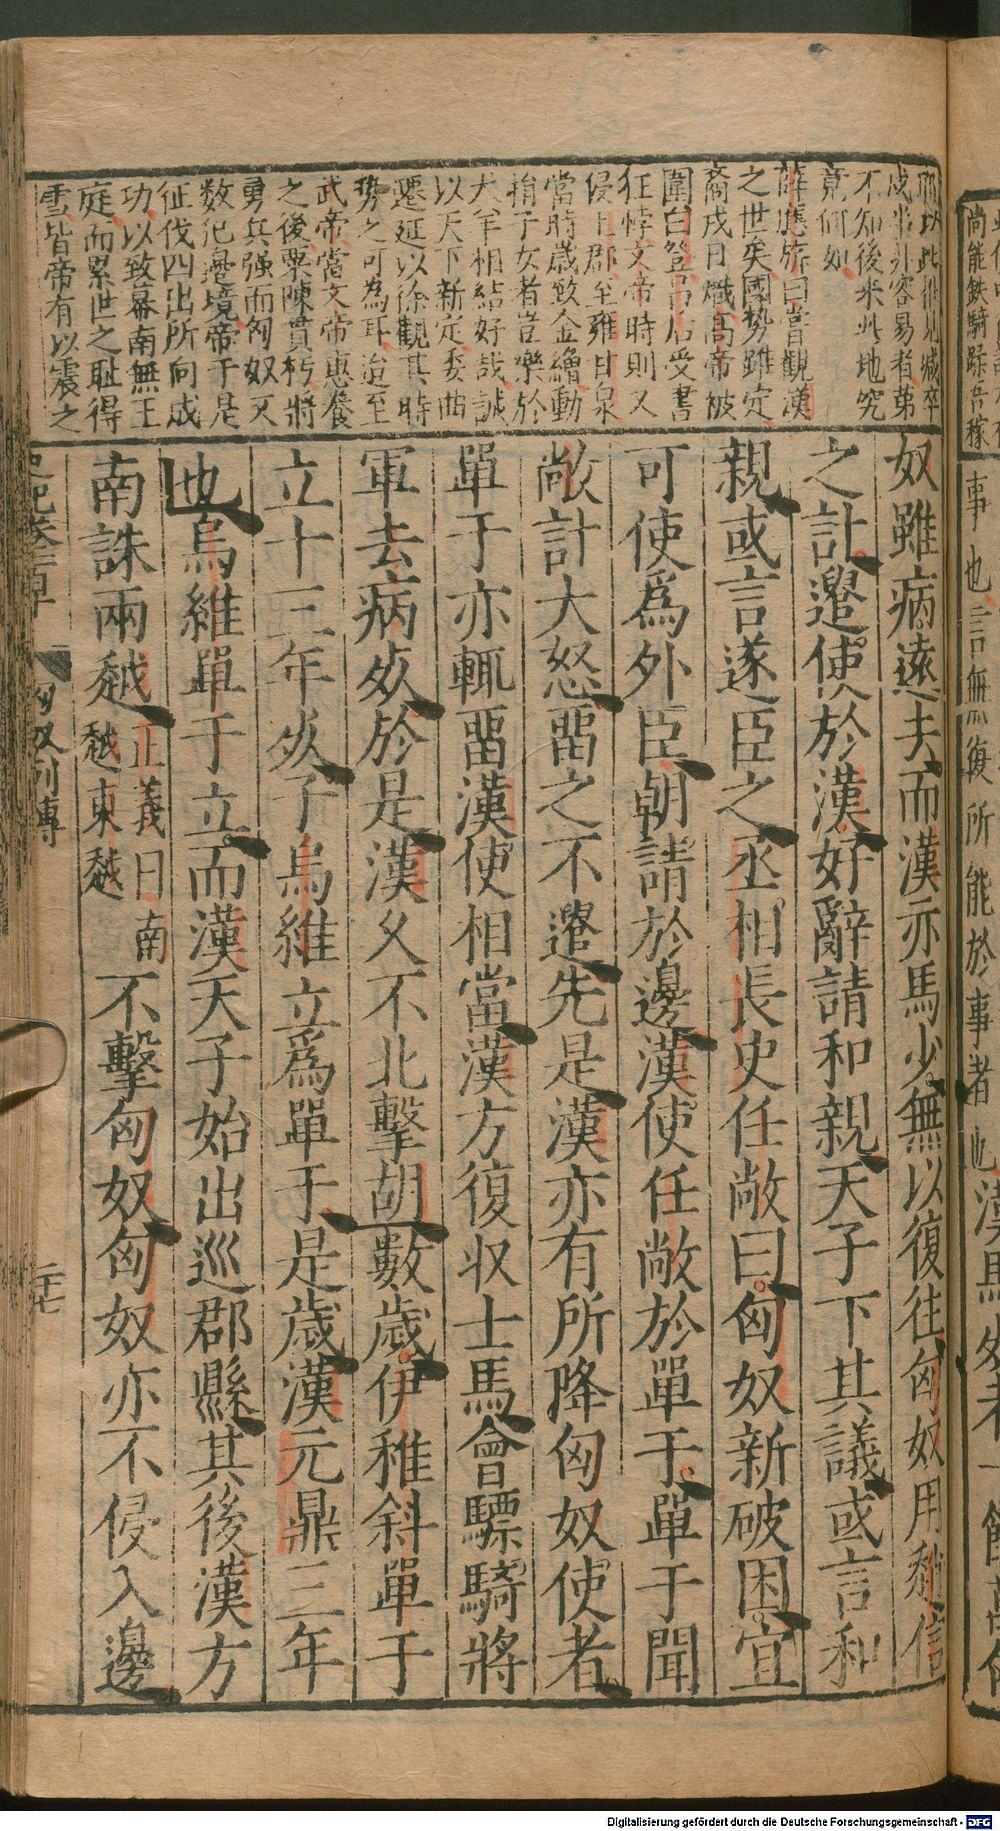 耶以此推見減卒
成事非容易者第
不知後來此地究
竟何如
薛應旂曰嘗觀漢
之世矣國勢雖定
裔戎日熾高帝被
圍白登呂后受書
狂悖文帝時則又
侵上郡至雍甘泉
當時歲致金繒動
捐子女者豈樂於
犬羊相結好哉誠
以天下新定委曲
遷延以徐觀其時
勢之可為耳迨至
武帝當文帝惠養
之後粟陳貫朽將
勇兵强而匈奴又
数犯邊境帝于是
征伐四出所向成
功以致幕南無王
庭而累世之耻得
雪皆帝有以震之
奴雖病遠去而漢亦馬少無以復往匈奴用趙信
之計遣使於漢好辭請和親天子下其議或言和
親或言遂臣之丞相長史任敞曰匈奴新破困宜
可使爲外臣朝請於邊漢使任敞於單于單于聞
敞計大怒畱之不遣先是漢亦有所降匈奴使者
單于亦輒畱漢使相當漢方復収士馬會驃騎將
軍去病死於是漢久不北擊胡數歲伊稚斜單于
立十三年死子烏維立爲單于是歲漢元鼎三年
也烏維單于立而漢天子始出巡郡縣其後漢方
南誅兩越正義曰南越東越不擊匈奴匈奴亦不侵入邊
匈奴列傳
二十七
尚能鉄騎蹂吾稼
事也言無復所能於事者也漢馬
Digitalisierung gefördert durch die Deutsche Forschungsgemeinschaft - DFG